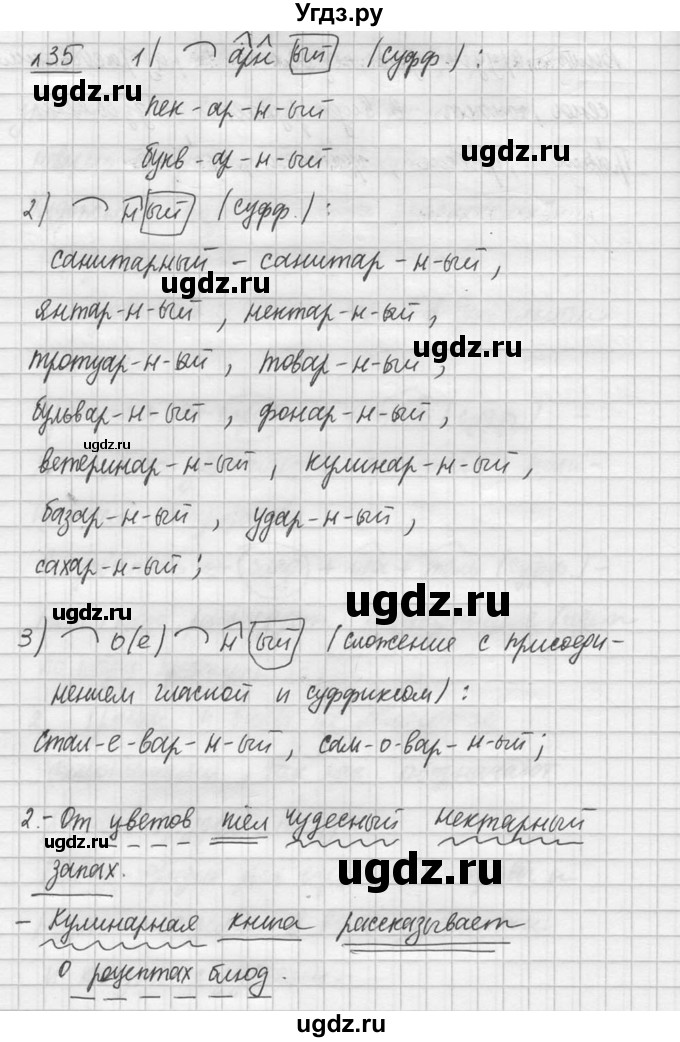 Угдз.ру
№35 1) арн ый (суфф.):
ugdz.ru
пек-ар-н-ый
ugdz.ru
букв-ар-н-ый
2) н ый (суфф.):
санитарный - санитар-н-ый,
ugdz.ru
янтар-н-ый, нектар-н-ый,
ugdz.ru
тротуар-н-ый, товар-н-ый,
бульвар-н-ый, фонар-н-ый,
ugdz.ru
ветеринар-н-ый, кулинар-н-ый,
базар-н-ый, удар-н-ый,
сахар-н-ый;
ugdz.ru
ugdz.ru
3) о(е) н ый (сложение с присоеди-
нением гласной и суффиксом):
стал-е-вар-н-ый, сам-о-вар-н-ый;
ugdz.ru
2.- От цветов шёл чудесный нектарный
запах.
ugdz.ru
- Кулинарная книга рассказывает
о рецептах блюд.
ugdz.ru
ugdz.ru